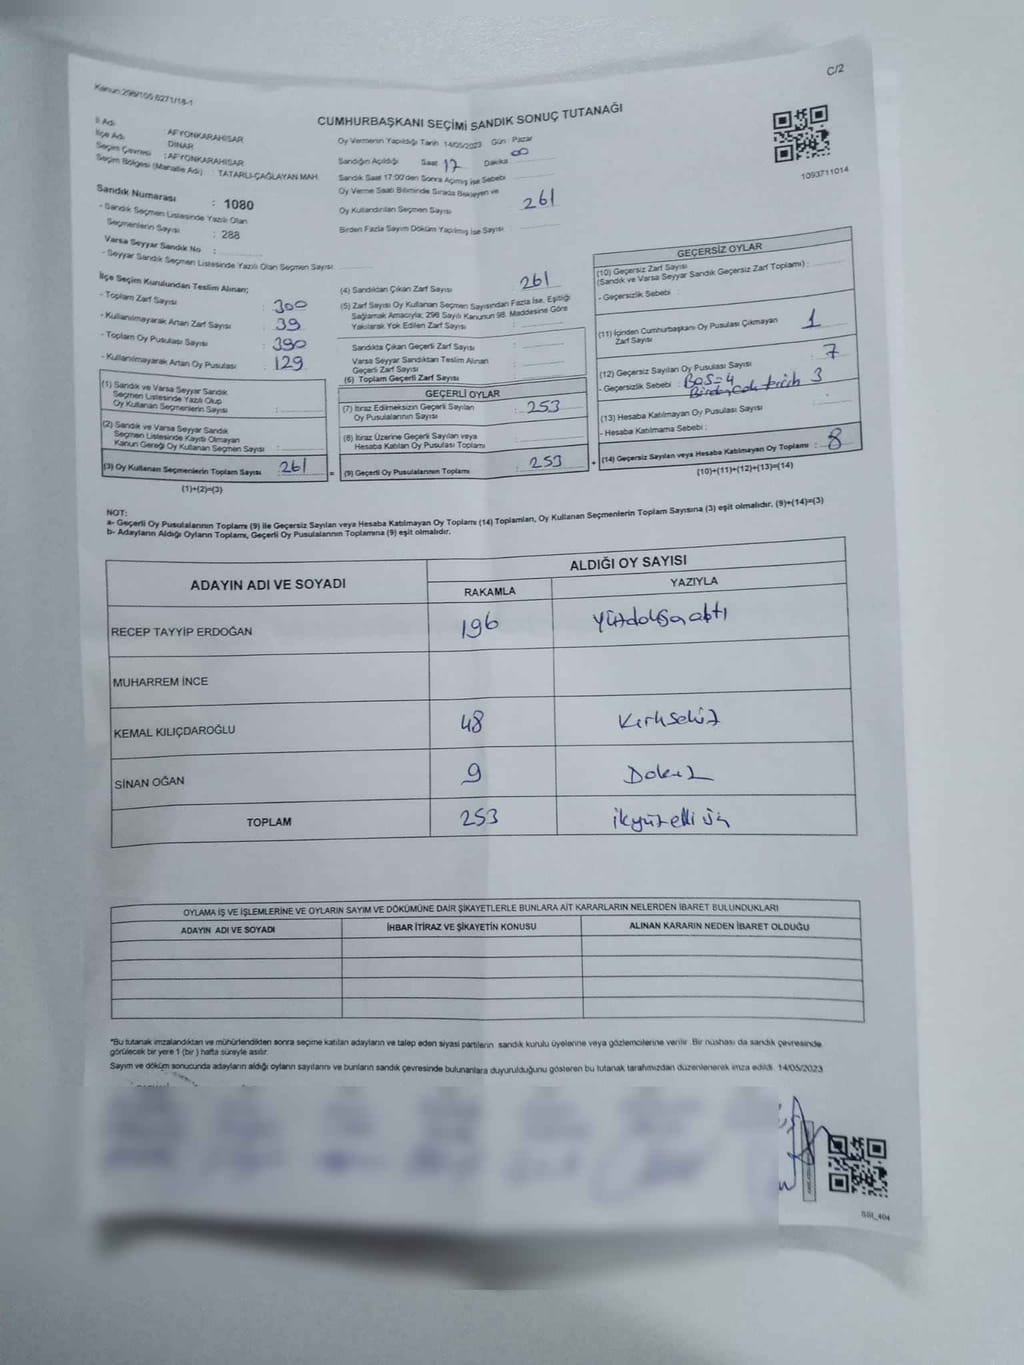 C/2
Kanun:298/105 6271/18-1
CUMHURBAŞKANI SEÇİMİ SANDIK SONUÇ TUTANAĞI
1093711014
İl Adı : AFYONKARAHİSAR
İlçe Adı : DİNAR
Seçim Çevresi : AFYONKARAHİSAR
Seçim Bölgesi (Mahalle Adı) : TATARLI-ÇAĞLAYAN MAH.
Sandık Numarası : 1080
- Sandık Seçmen Listesinde Yazılı Olan
Seçmenlerin Sayısı : 288
Varsa Seyyar Sandık No :
- Seyyar Sandık Seçmen Listesinde Yazılı Olan Seçmen Sayısı
Oy Vermenin Yapıldığı Tarih 14/05/2023 Gün : Pazar
Sandığın Açıldığı Saat 17 Dakika 00
Sandık Saat 17:00'den Sonra Açılmış İse Sebebi
Oy Verme Saati Bitiminde Sırada Bekleyen ve
Oy Kullandırılan Seçmen Sayısı 261
Birden Fazla Sayım Döküm Yapılmış İse Sayısı :
İlçe Seçim Kurulundan Teslim Alınan;
- Toplam Zarf Sayısı : 300
- Kullanılmayarak Artan Zarf Sayısı : 39
- Toplam Oy Pusulası Sayısı : 390
- Kullanılmayarak Artan Oy Pusulası : 129
(1) Sandık ve Varsa Seyyar Sandık
Seçmen Listesinde Yazılı Olup
Oy Kullanan Seçmenlerin Sayısı :
(2) Sandık ve Varsa Seyyar Sandık
Seçmen Listesinde Kayıtlı Olmayan
Kanun Gereği Oy Kullanan Seçmen Sayısı :
(3) Oy Kullanan Seçmenlerin Toplam Sayısı 261
(1)+(2)=(3)
(4) Sandıktan Çıkan Zarf Sayısı 261
(5) Zarf Sayısı Oy Kullanan Seçmen Sayısından Fazla İse, Eşitliği
Sağlamak Amacıyla; 298 Sayılı Kanunun 98. Maddesine Göre
Yakılarak Yok Edilen Zarf Sayısı :
Sandıkta Çıkan Geçerli Zarf Sayısı :
Varsa Seyyar Sandıktan Teslim Alınan
Geçerli Zarf Sayısı :
(6) Toplam Geçerli Zarf Sayısı :
GEÇERLİ OYLAR
(7) İtiraz Edilmeksizin Geçerli Sayılan
Oy Pusulalarının Sayısı : 253
(8) İtiraz Üzerine Geçerli Sayılan veya
Hesaba Katılan Oy Pusulası Toplamı :
(9) Geçerli Oy Pusulalarının Toplamı : 253
GEÇERSİZ OYLAR
(10) Geçersiz Zarf Sayısı
(Sandık ve Varsa Seyyar Sandık Geçersiz Zarf Toplamı) :
- Geçersizlik Sebebi :
(11) İçinden Cumhurbaşkanı Oy Pusulası Çıkmayan
Zarf Sayısı : 1
(12) Geçersiz Sayılan Oy Pusulası Sayısı : 7
- Geçersizlik Sebebi : BOŞ=4
Birden çok tercih 3
(13) Hesaba Katılmayan Oy Pusulası Sayısı :
- Hesaba Katılmama Sebebi :
(14) Geçersiz Sayılan veya Hesaba Katılmayan Oy Toplamı : 8
(10)+(11)+(12)+(13)=(14)
NOT:
a- Geçerli Oy Pusulalarının Toplamı (9) ile Geçersiz Sayılan veya Hesaba Katılmayan Oy Toplamı (14) Toplamları, Oy Kullanan Seçmenlerin Toplam Sayısına (3) eşit olmalıdır. (9)+(14)=(3)
b- Adayların Aldığı Oyların Toplamı, Geçerli Oy Pusulalarının Toplamına (9) eşit olmalıdır.
ADAYIN ADI VE SOYADI
ALDIĞI OY SAYISI
RAKAMLA YAZIYLA
RECEP TAYYİP ERDOĞAN 196 Yüzdoksanaltı
MUHARREM İNCE
KEMAL KILIÇDAROĞLU 48 Kırksekiz
SİNAN OĞAN 9 Dokuz
TOPLAM 253 ikiyüzelli üç
OYLAMA İŞ VE İŞLEMLERİNE VE OYLARIN SAYIM VE DÖKÜMÜNE DAİR ŞİKAYETLERLE BUNLARA AİT KARARLARIN NELERDEN İBARET BULUNDUKLARI
ADAYIN ADI VE SOYADI İHBAR İTİRAZ VE ŞİKAYETİN KONUSU ALINAN KARARIN NEDEN İBARET OLDUĞU
*Bu tutanak imzalandıktan ve mühürlendikten sonra seçime katılan adayların ve talep eden siyasi partilerin sandık kurulu üyelerine veya gözlemcilerine verilir. Bir nüshası da sandık çevresinde
görülecek bir yere 1 (bir) hafta süreyle asılır.
Sayım ve döküm sonucunda adayların aldığı oyların sayılarını ve bunların sandık çevresinde bulunanlara duyurulduğunu gösteren bu tutanak tarafımızdan düzenlenerek imza edildi. 14/05/2023